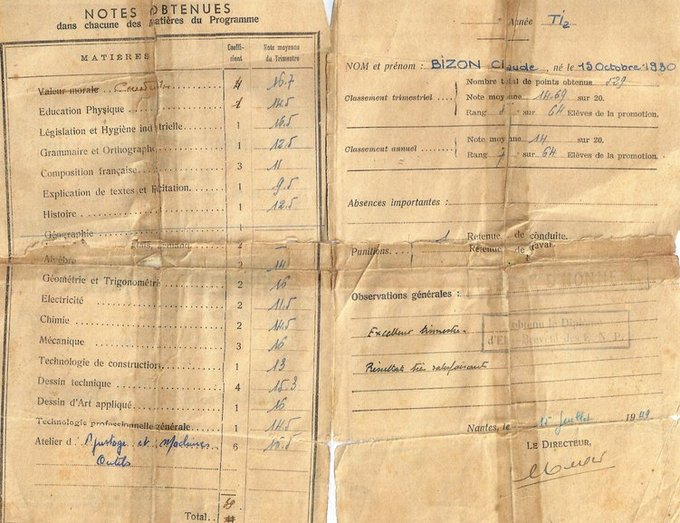 NOTES OBTENUES
dans chacune des Matières du Programme
MATIÈRES
Coefficient
Note moyenne du Trimestre
Valeur morale 4 16.7
Education Physique 1 14.5
Législation et Hygiène industrielle 1 16.5
Grammaire et Orthographe 1 12.5
Composition française 3 11
Explication de textes et Récitation 1 9.5
Histoire 1 12.5
Géographie
Algèbre 2 14
Géométrie et Trigonométrie 2 16
Electricité 2 11.5
Chimie 2 14.5
Mécanique 3 16
Technologie de construction 1 13
Dessin technique 4 15.3
Dessin d'Art appliqué 1 16
Technologie professionnelle générale 1 14.5
Atelier d'Ajustage et Machines 6
Outils
Total
Année TI2
NOM et prénom : BIZON Claude, né le 19 Octobre 1930
Nombre total de points obtenus 529
Classement trimestriel
Note moyenne 14.69 sur 20.
Rang 8 sur 64 Elèves de la promotion.
Classement annuel
Note moyenne 14 sur 20.
Rang 7 sur 64 Elèves de la promotion.
Absences importantes :
Punitions
1 Retenue de conduite.
Retenue de travail.
Observations générales :
Excellent trimestre.
obtenu le Diplôme
d'Elève Breveté des E. N. P.
Résultats très satisfaisants
Nantes, le 15 juillet 1949
LE DIRECTEUR,